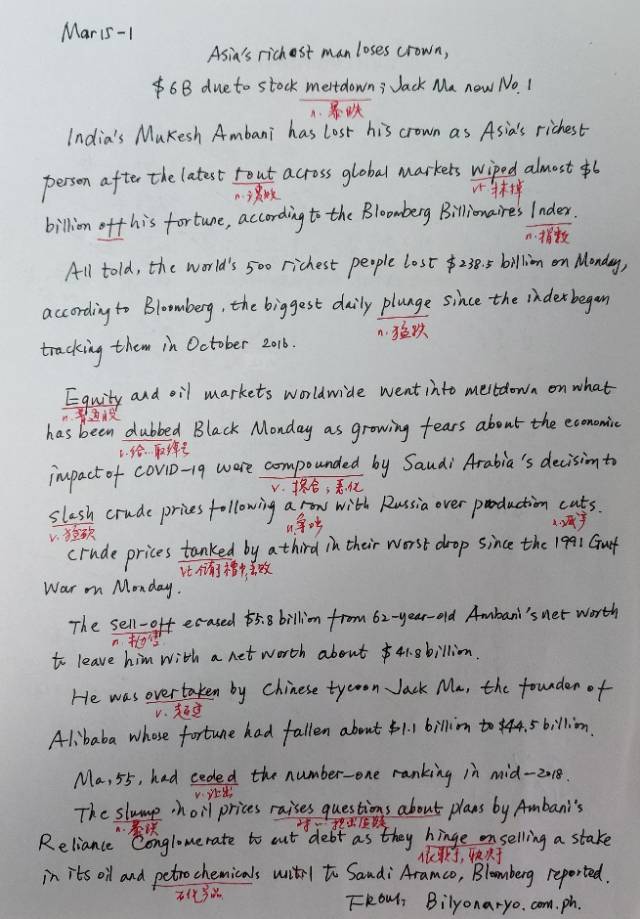 Mar 15-1
Asia's richest man loses crown,
$6B due to stock meltdown; Jack Ma now No. 1
n. 暴跌
India's Mukesh Ambani has lost his crown as Asia's richest
person after the latest rout across global markets wiped almost $6
n. 溃败 vt. 抹掉
billion off his fortune, according to the Bloomberg Billionaires Index.
n. 指数
All told, the world's 500 richest people lost $238.5 billion on Monday,
according to Bloomberg, the biggest daily plunge since the index began
n. 猛跌
tracking them in October 2016.
Equity and oil markets worldwide went into meltdown on what
n. 普通股
has been dubbed Black Monday as growing fears about the economic
v. 给…取绰号
impact of COVID-19 were compounded by Saudi Arabia's decision to
v. 掺合;恶化
slash crude prices following a row with Russia over production cuts.
v. 猛砍 n. 争吵 n. 减少
crude prices tanked by a third in their worst drop since the 1991 Gulf
War on Monday.
The sell-off erased $5.8 billion from 62-year-old Ambani's net worth
n. 抛售
to leave him with a net worth about $41.8 billion.
He was overtaken by Chinese tycoon Jack Ma, the founder of
v. 超过
Alibaba whose fortune had fallen about $1.1 billion to $44.5 billion.
Ma, 55, had ceded the number-one ranking in mid-2018.
v. 让出
The slump in oil prices raises questions about plans by Ambani's
n. 暴跌 对…提出质疑
Reliance Conglomerate to cut debt as they hinge on selling a stake
依赖于,取决于
in its oil and petrochemicals unit to Saudi Aramco, Bloomberg reported.
石化产品
From, Bilyonaryo.com.ph.